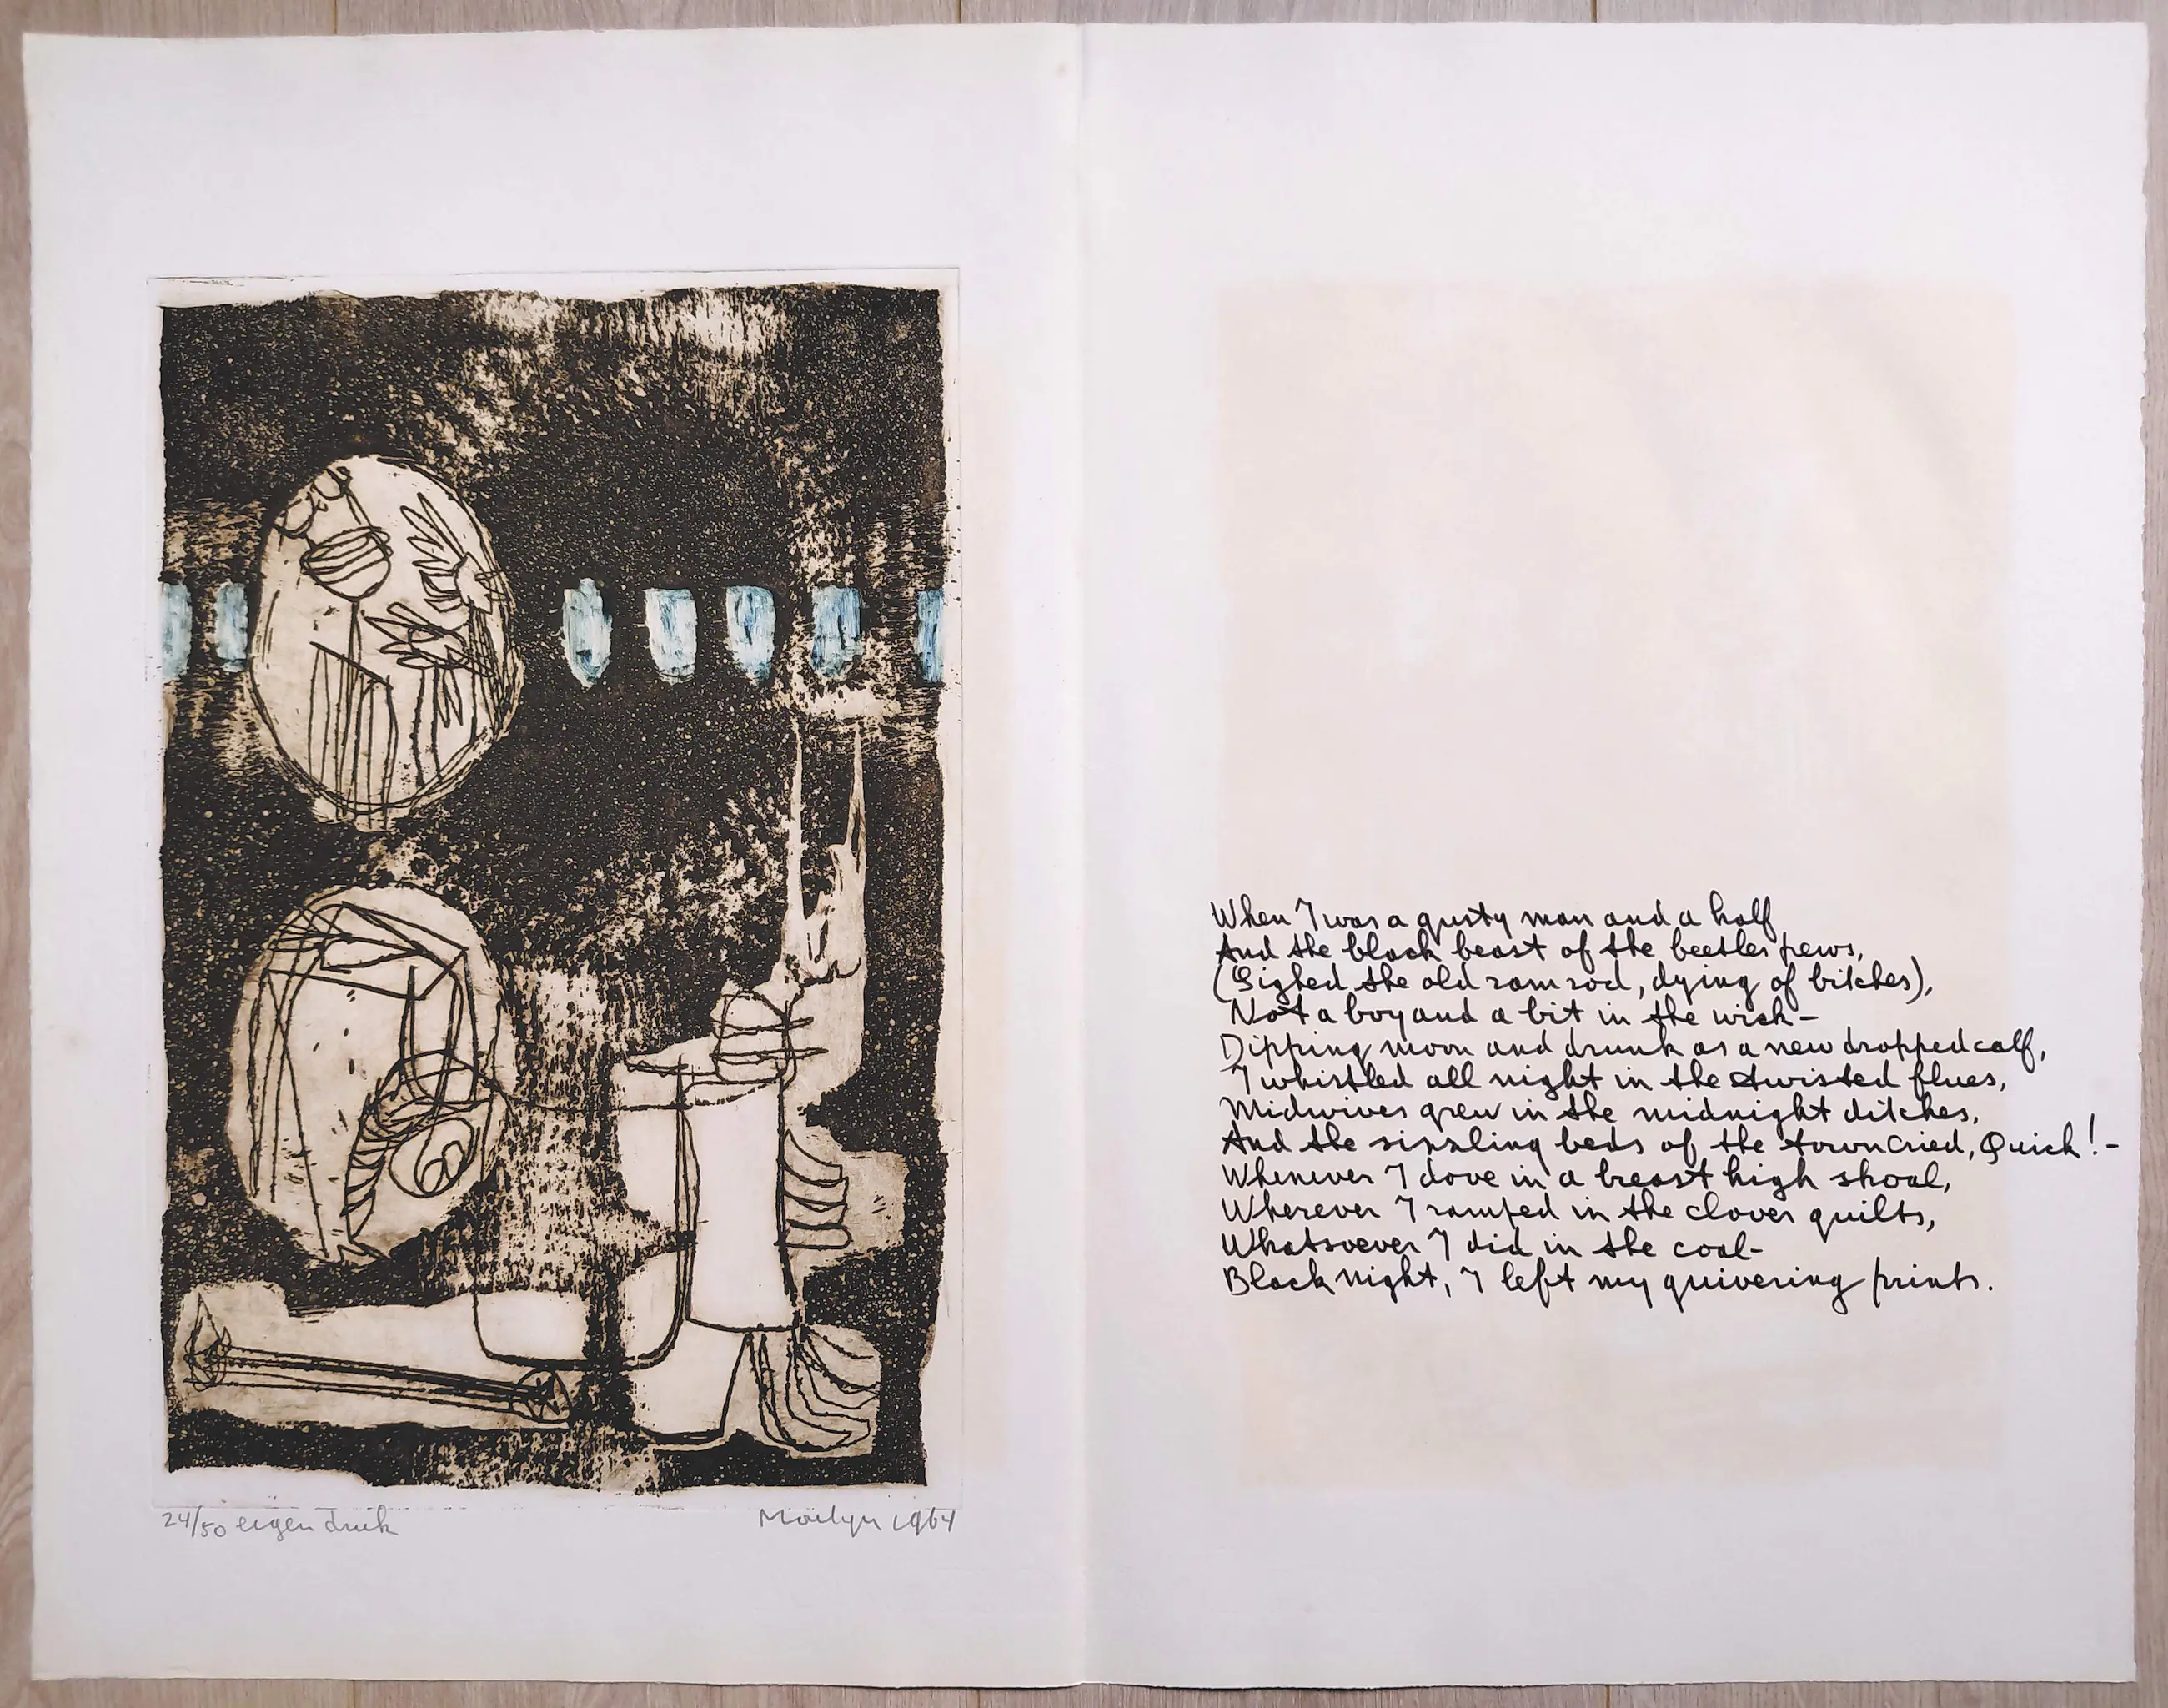 When I was a gusty man and a half
And the black beast of the beetles pews,
(Sighed the old ram rod, dying of bitches),
Not a boy and a bit in the wick-
Dipping moon and drunk as a new dropped calf,
I whistled all night in the twisted flues,
Midwives grew in the midnight ditches,
And the sizzling beds of the town cried, Quick!-
Whenever I dove in a breast high shoal,
Wherever I ramped in the clover quilts,
Whatsoever I did in the coal-
Black night, I left my quivering prints.
24/50 eigen druk
1964